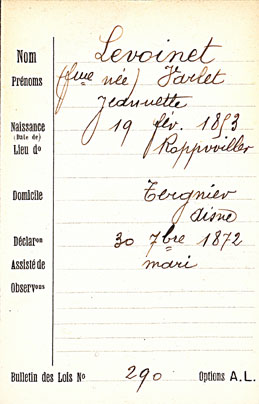 Nom Levoinet
Prénoms (fme née) Varlet
Jeannette
Naissance 19 fév. 1853
(Date de)
Lieu do Roppwiller
Domicile Tergnier
Aisne
Déclaron 30 7bre 1872
Assisté de mari
Observons
Bulletin des Lois No 290 Options A.L.